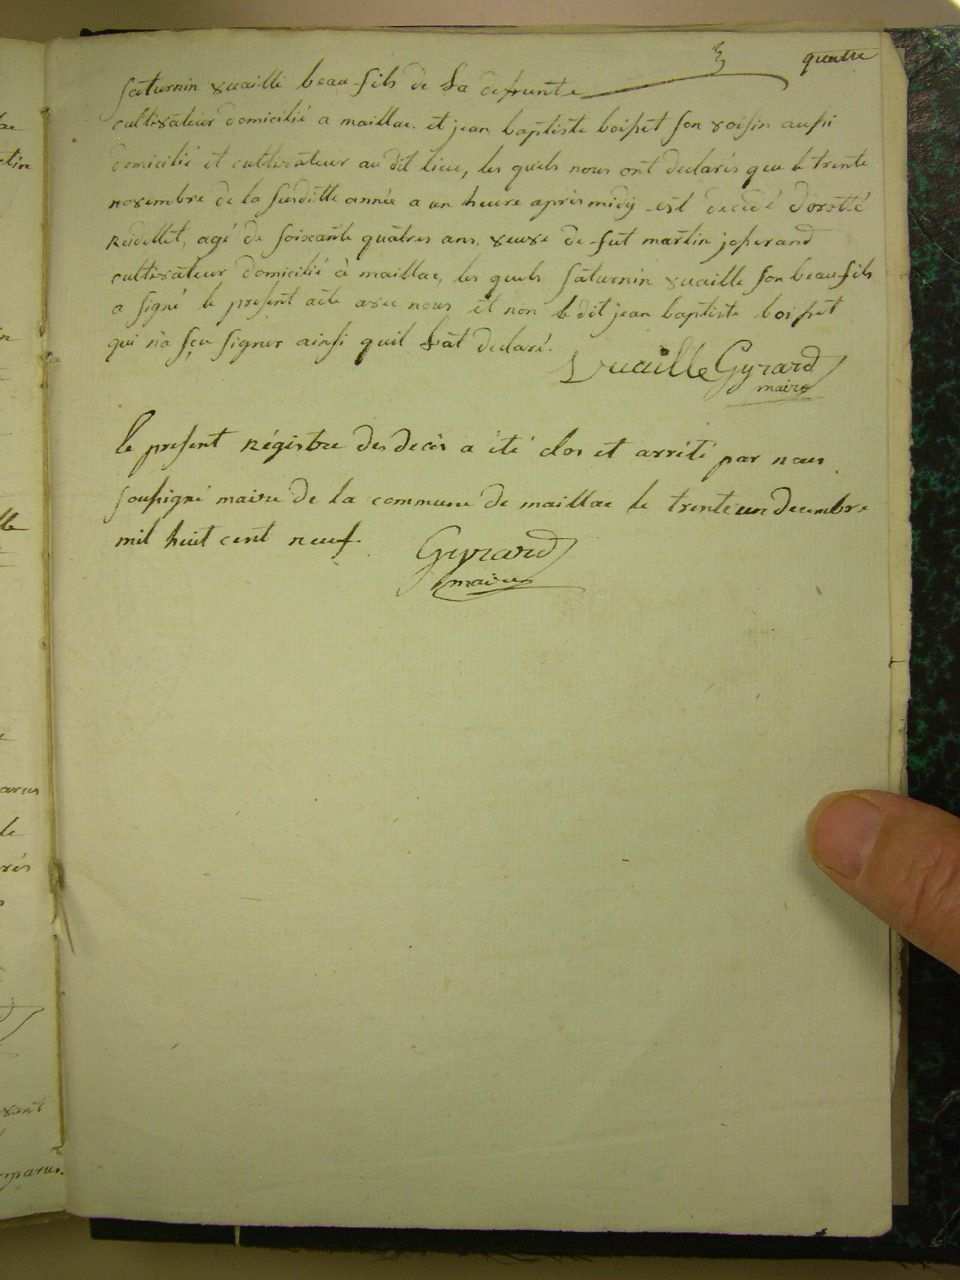 quatre
Saturnin vuaille beau-fils de La defunte
cultivateur domicilié a maillac et jean baptiste boisset son voisin aussi
domicilié et cultivateur au dit lieu, les quels nous ont declarés que le trente
novembre de la susditte année a un heure après midy est decedé dorotté
Reudellet, agé de soixante quatres ans, veuve de fut martin josserand
cultivateur domicilié à maillac, les quels saturnin vuaille son beau fils
a signé le present acte avec nous et non le dit jean baptiste boisset
qui n'a sçu signer ainsi quil L'at declaré.
Vuaille Gyrard
maire
le present Régistre des decès a été clos et arrêté par nous
soussigné maire de la commune de maillac le trente un decembre
mil huit cent neuf.
Gyrard
maire
arus
le
rés
vant